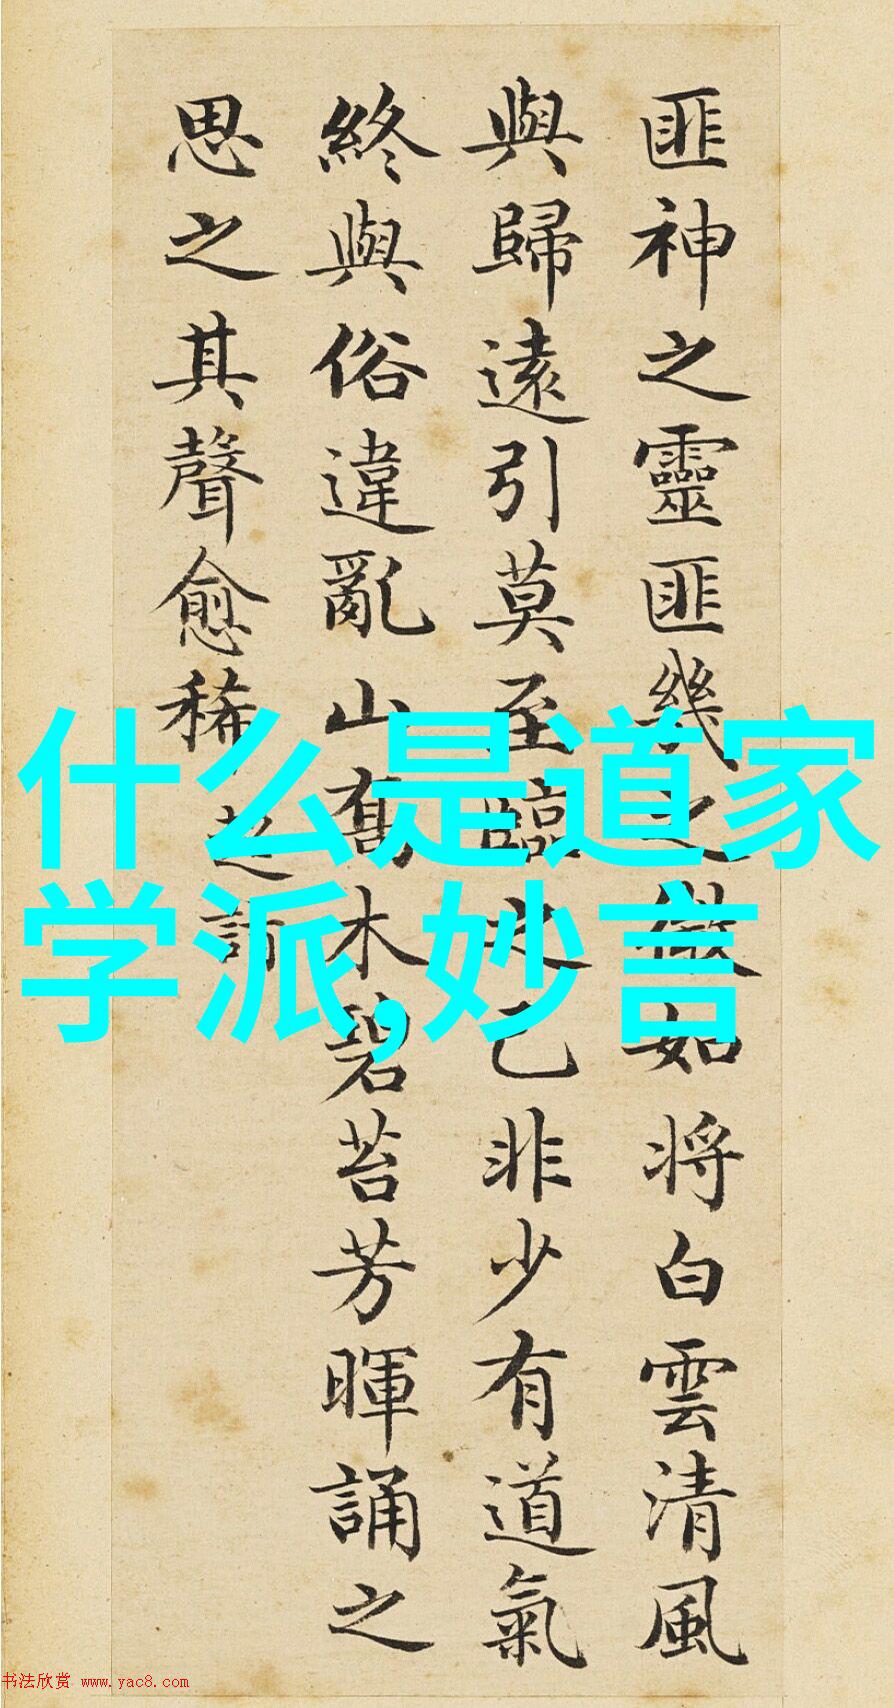 匪神之靈匪幾之微如将白雲清風
與歸遠引莫至臨之已非少有道氣
終與俗違亂山喬木碧苔芳暉誦之
思之其聲愈稀
超詣
什么是道家
学派,妙言
书法欣赏 www.yac8.com